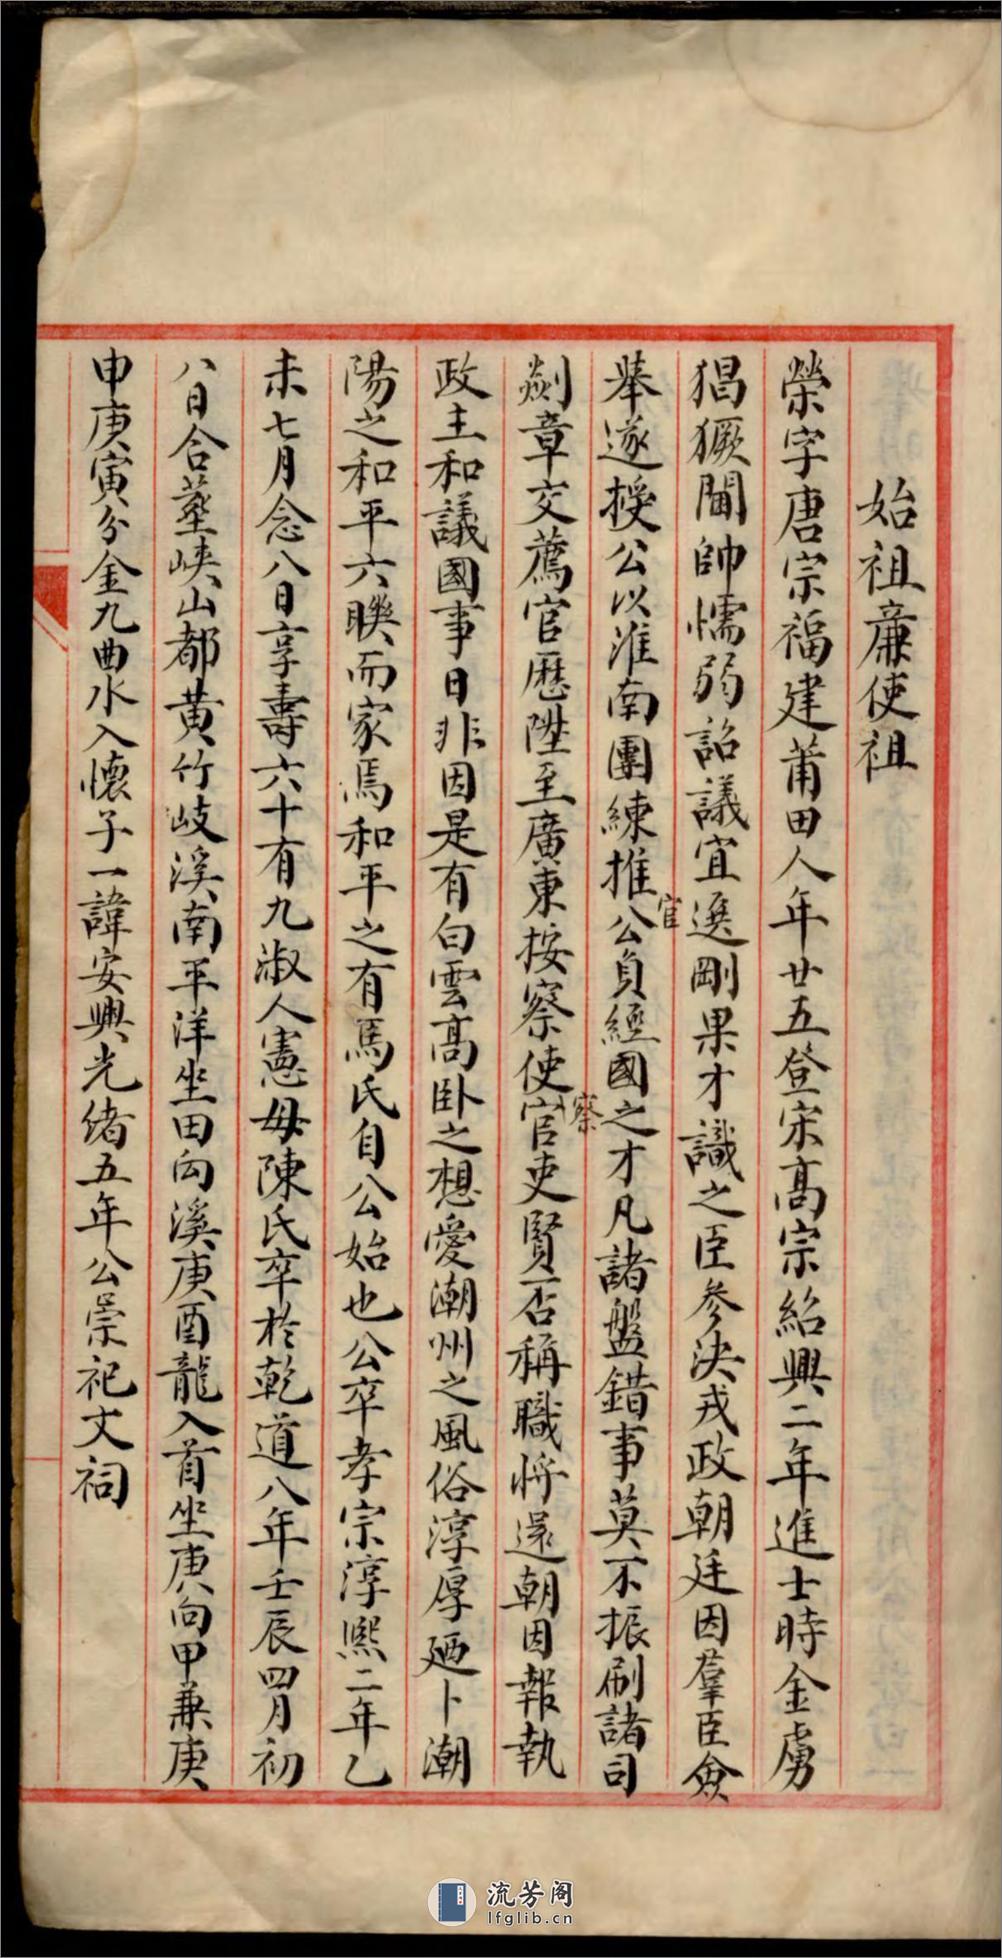 始祖廉使祖
榮字唐宗福建莆田人年廿五登宋高宗紹興二年進士時金虜
猖獗閫帥懦弱詔議宜選剛果才識之臣參決戎政朝廷因羣臣僉
舉遂授公以淮南團練推官公負經國之才凡諸盤錯事莫不振刷諸司
剡章交薦官歷陞至廣東按察使察官吏賢否稱職將還朝因報執
政主和議國事日非因是有白雲高卧之想愛潮州之風俗淳厚廼卜潮
陽之和平六聯而家焉和平之有馬氏自公始也公卒孝宗淳熙二年乙
未七月念八日享壽六十有九淑人憲母陳氏卒於乾道八年壬辰四月初
八日合塟峽山都黃竹岐溪南平洋坐田向溪庚酉龍入首坐庚向甲兼庚
申庚寅分金九曲水入懷子一諱安興光緒五年公崇祀文祠
流芳阁
lfglib.cn